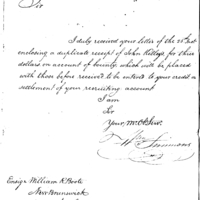 Sir
I duly received your letter of the 22d Inst
enclosing a duplicate receipt of John Kelley for three
dollars on account of bounty which will be placed
with those before received to be entered to your credit on
settlement of your recruiting account
I am
Sir
Your, mo Ob Ser.
Wm Simmons
Ensign William K Boote
New Brunswick